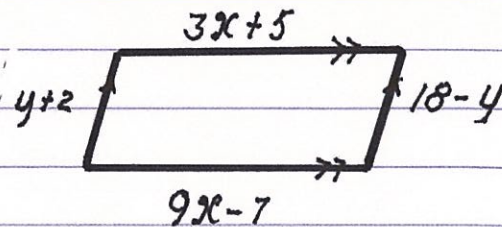 3x+5
y+2
18-y
9x-7